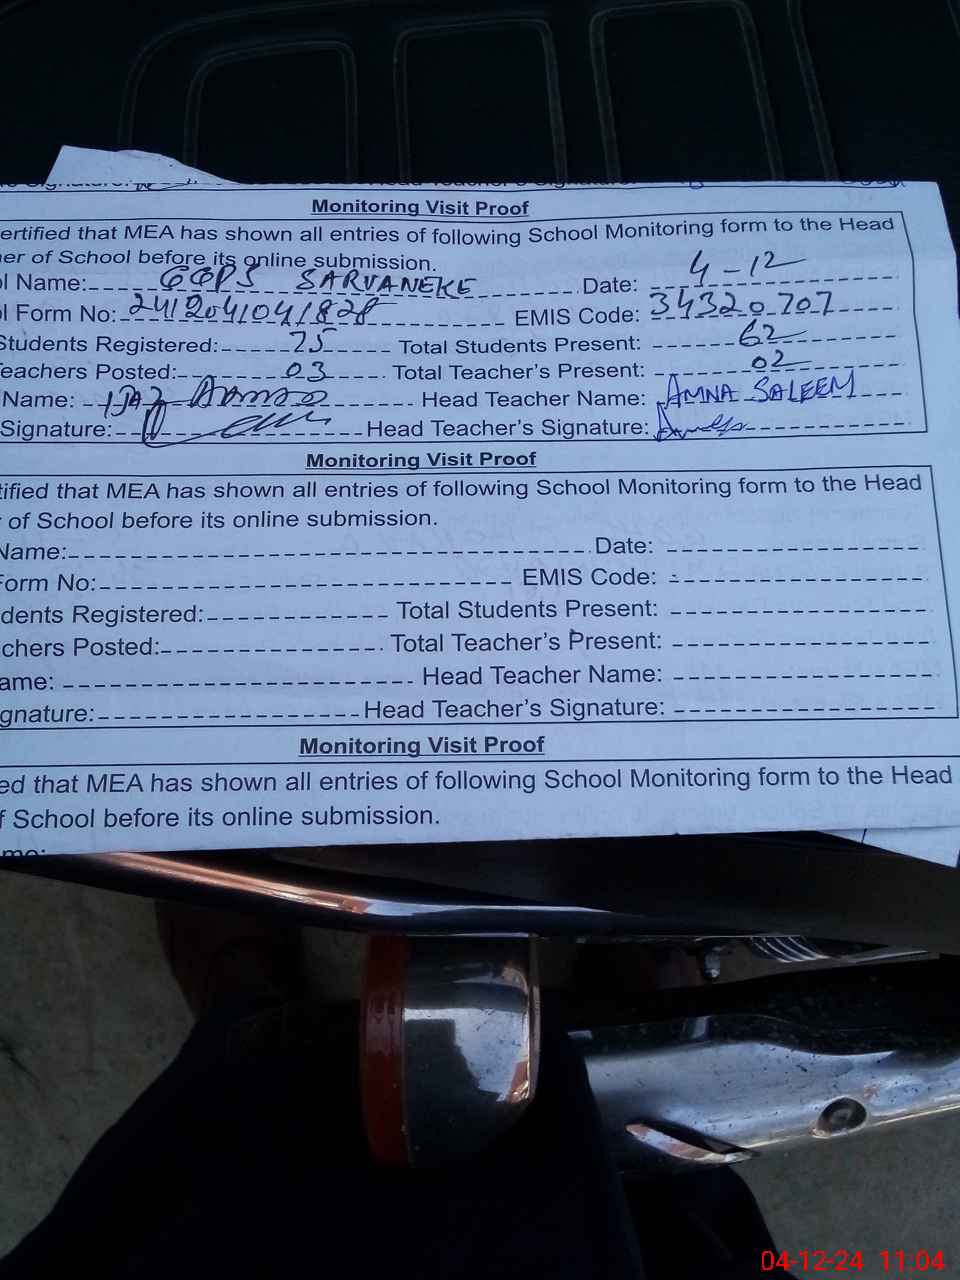 Monitoring Visit Proof
ertified that MEA has shown all entries of following School Monitoring form to the Head
er of School before its online submission.
l Name: GGPS SARVANEKE Date: 4-12
l Form No: EMIS Code: 34320707
Students Registered: 75 Total Students Present: 62
eachers Posted: 03 Total Teacher's Present: 02
Name: IJAZ Head Teacher Name: AMNA SALEEM
Signature: Head Teacher's Signature:
Monitoring Visit Proof
tified that MEA has shown all entries of following School Monitoring form to the Head
r of School before its online submission.
Name: Date:
Form No: EMIS Code:
dents Registered: Total Students Present:
chers Posted: Total Teacher's Present:
ame: Head Teacher Name:
gnature: Head Teacher's Signature:
Monitoring Visit Proof
ed that MEA has shown all entries of following School Monitoring form to the Head
f School before its online submission.
me:
04-12-24 11:04